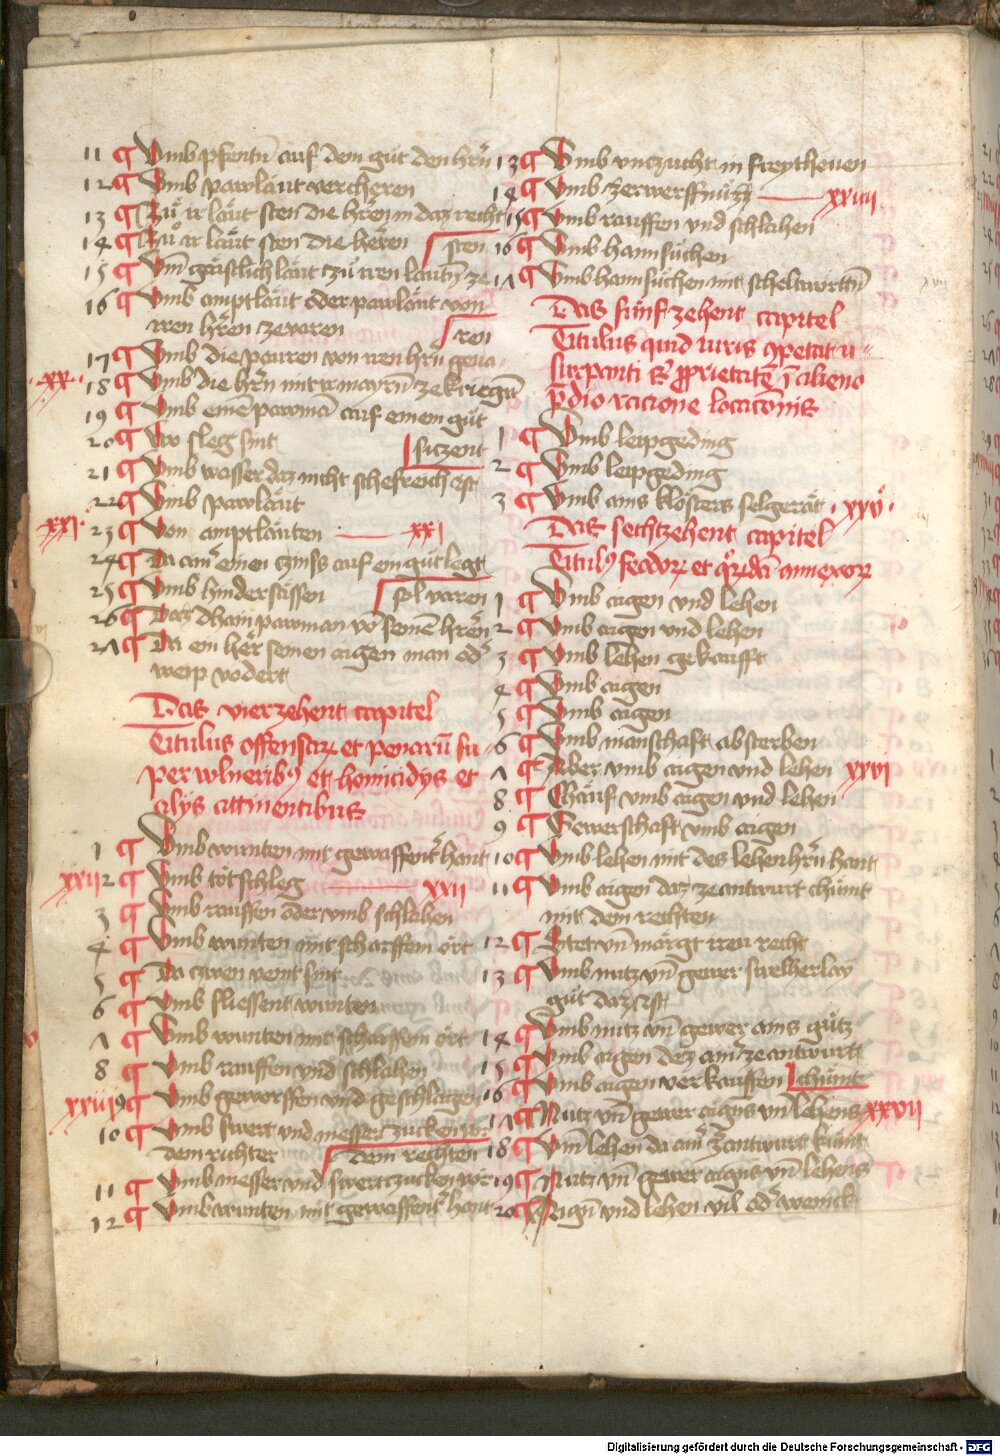 11 ¶ Umb pfentn̄ auf dem gůt den hrn̄
12 ¶ Umb pawläut vercheren
13 ¶ Zů ir läut sten die hr̄en in daz recht
14 ¶ Zů ir läut sten die heren
sten
15 ¶ Um̄ gäistlich läut zů iren läutn̄ ze
16 ¶ Umb amptläut oder pawläut von
iren hr̄en zevaren
ren
17 ¶ Umb die pauren von iren hrn̄ geua-
·xx· 18 ¶ Umb die hrn̄ mit ir mayrn̄ ze kriegen
19 ¶ Umb einē pawmā auf einem gůt
20 ¶ Wo sleg sint
siczent
21 ¶ Umb wasser daz nicht schefreich ist
22 ¶ Umb pawläut
xxi· 23 ¶ Von amptläuten xxi
24 ¶ Da ainer einen czinss auf ein gůt legt
25 ¶ Umb hindersässen
sol varen
26 ¶ Daz dhain pawman vō seinē hrēn
27 ¶ Da ein her seinen aigen man od̄
weip vodert
Das vierzehent capitel
Titulus offensar̄ et penarū su-
per wlneribꝯ et homicidÿs et
alÿs attinentibus
1 ¶ Umb wunten mit gewaffent̄ hant
xxii 2 ¶ Umb totschleg xxii
3 ¶ Umb rauffen oder umb schlahen
4 ¶ Umb wunten mit scharffem ort
5 ¶ Da czwen veint sint
6 ¶ Umb fliessent wunten
7 ¶ Umb wunten mit scharffem ort
8 ¶ Umb rauffen vnd schlahen
xxiii 9 ¶ Umb geworffen vnd geschlagen
10 ¶ Umb swert vnd messer zucken vor
dem richter
dem rechten
11 ¶ Umb messer vnd swert zucken vor
12 ¶ Umb wunten mit gewaffent̄ hant
13 ¶ Umb vnczucht in freytheuen
14 ¶ Umb zerwerffnüzz xxiiii
15 ¶ Umb rauffen vnd schlahen
16 ¶ Umb haimsůchen
17 ¶ Umb haimsůchen mit scheltworttn̄
Das fünfzehent capitel
Titulus quid iuris ꝯpetat u-
surpanti s̄ proprietatē ī alieno
p̄dio racione locacōnis
1 ¶ Umb leipgeding
2 ¶ Umb leipgeding
3 ¶ Umb ains klosters selgerät · xxv ·
Das sechtzehent capitel
Titulꝯ feodor̄ et quor̄dā annexor̄
1 ¶ Umb aigen vnd lehen
2 ¶ Umb aigen vnd lehen
3 ¶ Umb lehen gekaufft
4 ¶ Umb aigen
5 ¶ Umb aigen
6 ¶ Umb manschaft absterben
7 ¶ Aber umb aigen vnd lehen xxvi
8 ¶ Chäuf umb aigen vnd lehen
9 ¶ Gewerschaft umb aigen
10 ¶ Umb lehen mit des lehenhrn̄ hant
11 ¶ Umb aigen daz ze antwurt chümt
mit dem rechten
12 ¶ Stet vn̄ märgt iren recht
13 ¶ Umb nutz vn̄ gewer swelherlay
gůt daz ist
14 ¶ Umb nutz vn̄ gewer ains gůtz
15 ¶ Umb aigen dez ainer ze antwurtt
chümt
16 ¶ Umb aigen verkauffen
17 ¶ Nutz vn̄ gewer aigens vn̄ lehens xxvii
18 ¶ Um̄ lehen da ainer ze antwurt kümt
19 ¶ Nutz vn̄ gewer aigens vn̄ lehens
20 ¶ Aigen vnd lehen vil od̄ wenick
Digitalisierung gefördert durch die Deutsche Forschungsgemeinschaft - DFG